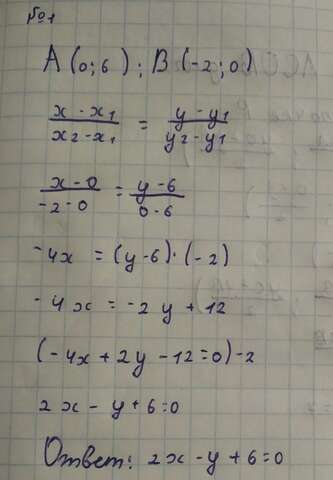 №1
A (0; 6) ; B (-2; 0)
(x - x₁)/(x₂ - x₁) = (y - y₁)/(y₂ - y₁)
(x - 0)/(-2 - 0) = (y - 6)/(0 - 6)
-4x = (y - 6) · (-2)
-4x = -2y + 12
(-4x + 2y - 12 = 0) -2
2x - y + 6 = 0
Ответ: 2x - y + 6 = 0